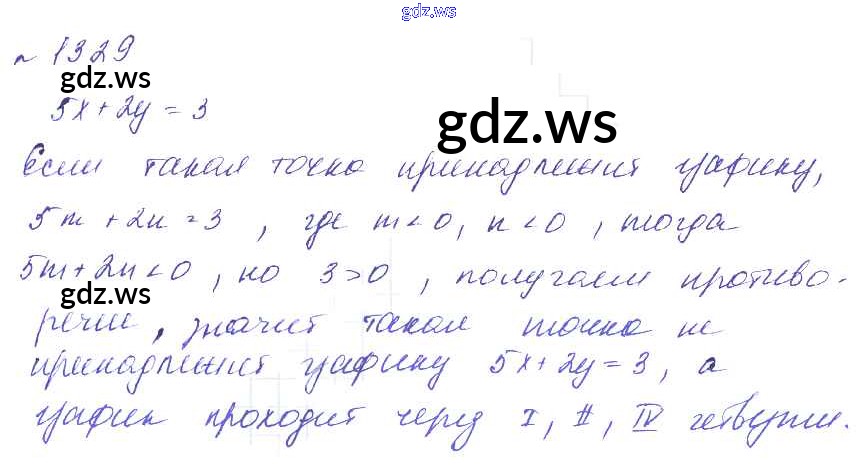 gdz.ws
№ 1329
gdz.ws
5x + 2y = 3
gdz.ws
Если такая точка принадлежит графику,
5m + 2n = 3, где m < 0, n < 0, тогда
5m + 2n < 0, но 3 > 0, получаем противо-
gdz.ws
речие, значит такая точка не
принадлежит графику 5x + 2y = 3, а
график проходит через I, II, IV четверти.